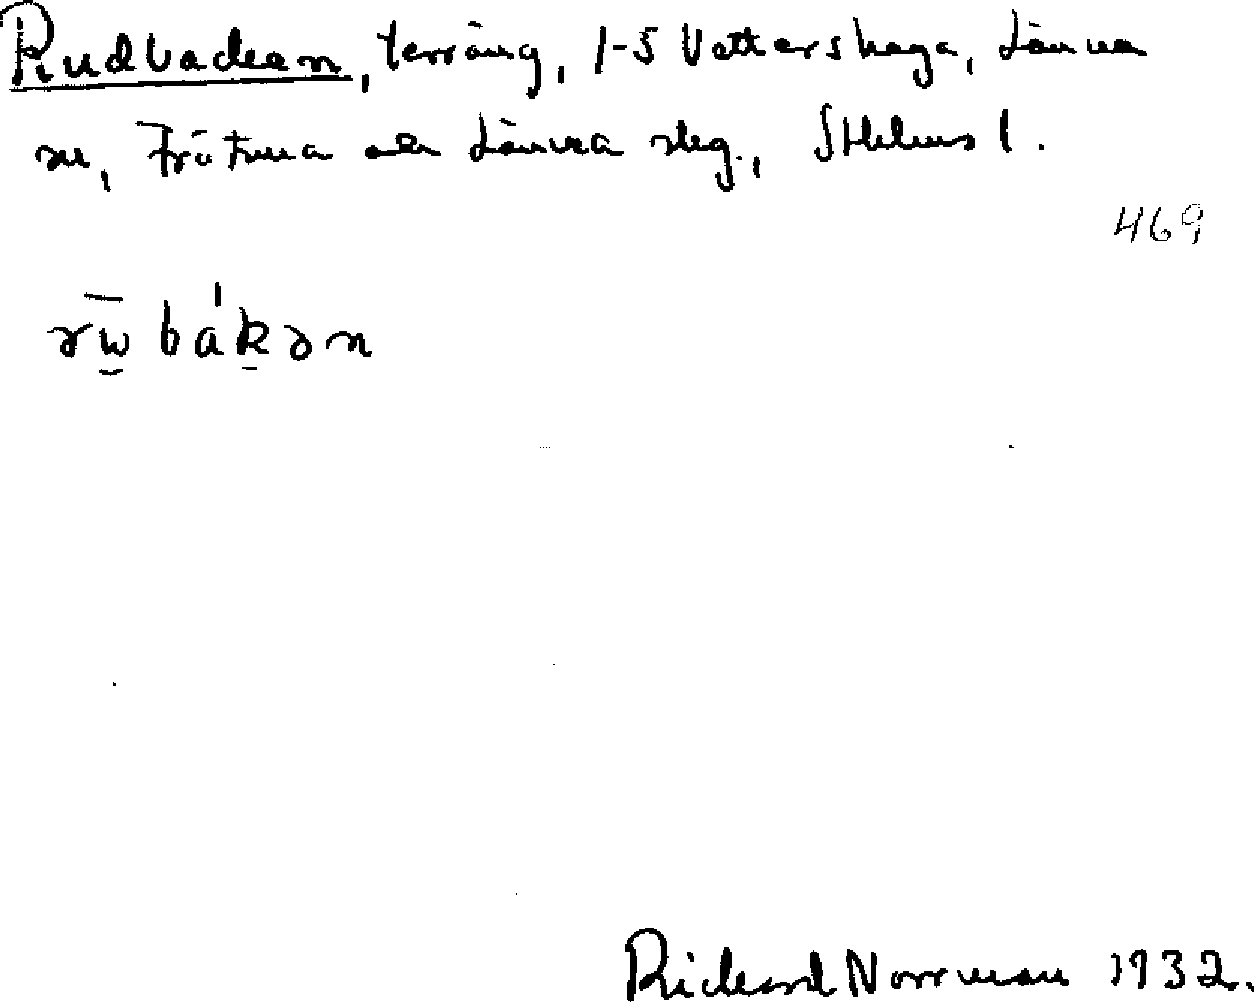 Rudbacken, terräng, 1-5 Vettershaga, Länna
sn, Frötuna och Länna skg., Sthlms l.
469
rw̄bákən
Richard Norrman 1932.